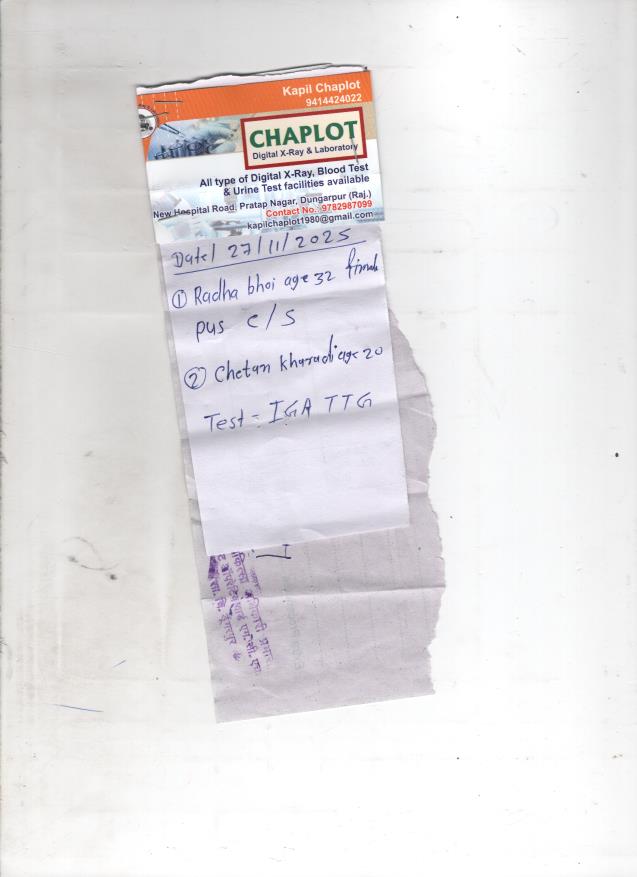 Kapil Chaplot
9414424022
CHAPLOT
Digital X-Ray & Laboratory
All type of Digital X-Ray, Blood Test
& Urine Test facilities available
New Hospital Road, Pratap Nagar, Dungarpur (Raj.)
Contact No. :9782987099
kapilchaplot1980@gmail.com
Date/ 27/11/2025
① Radha bhoi age 32
pus C/S
② Chetan kharadi age 20
Test = IGA TTG